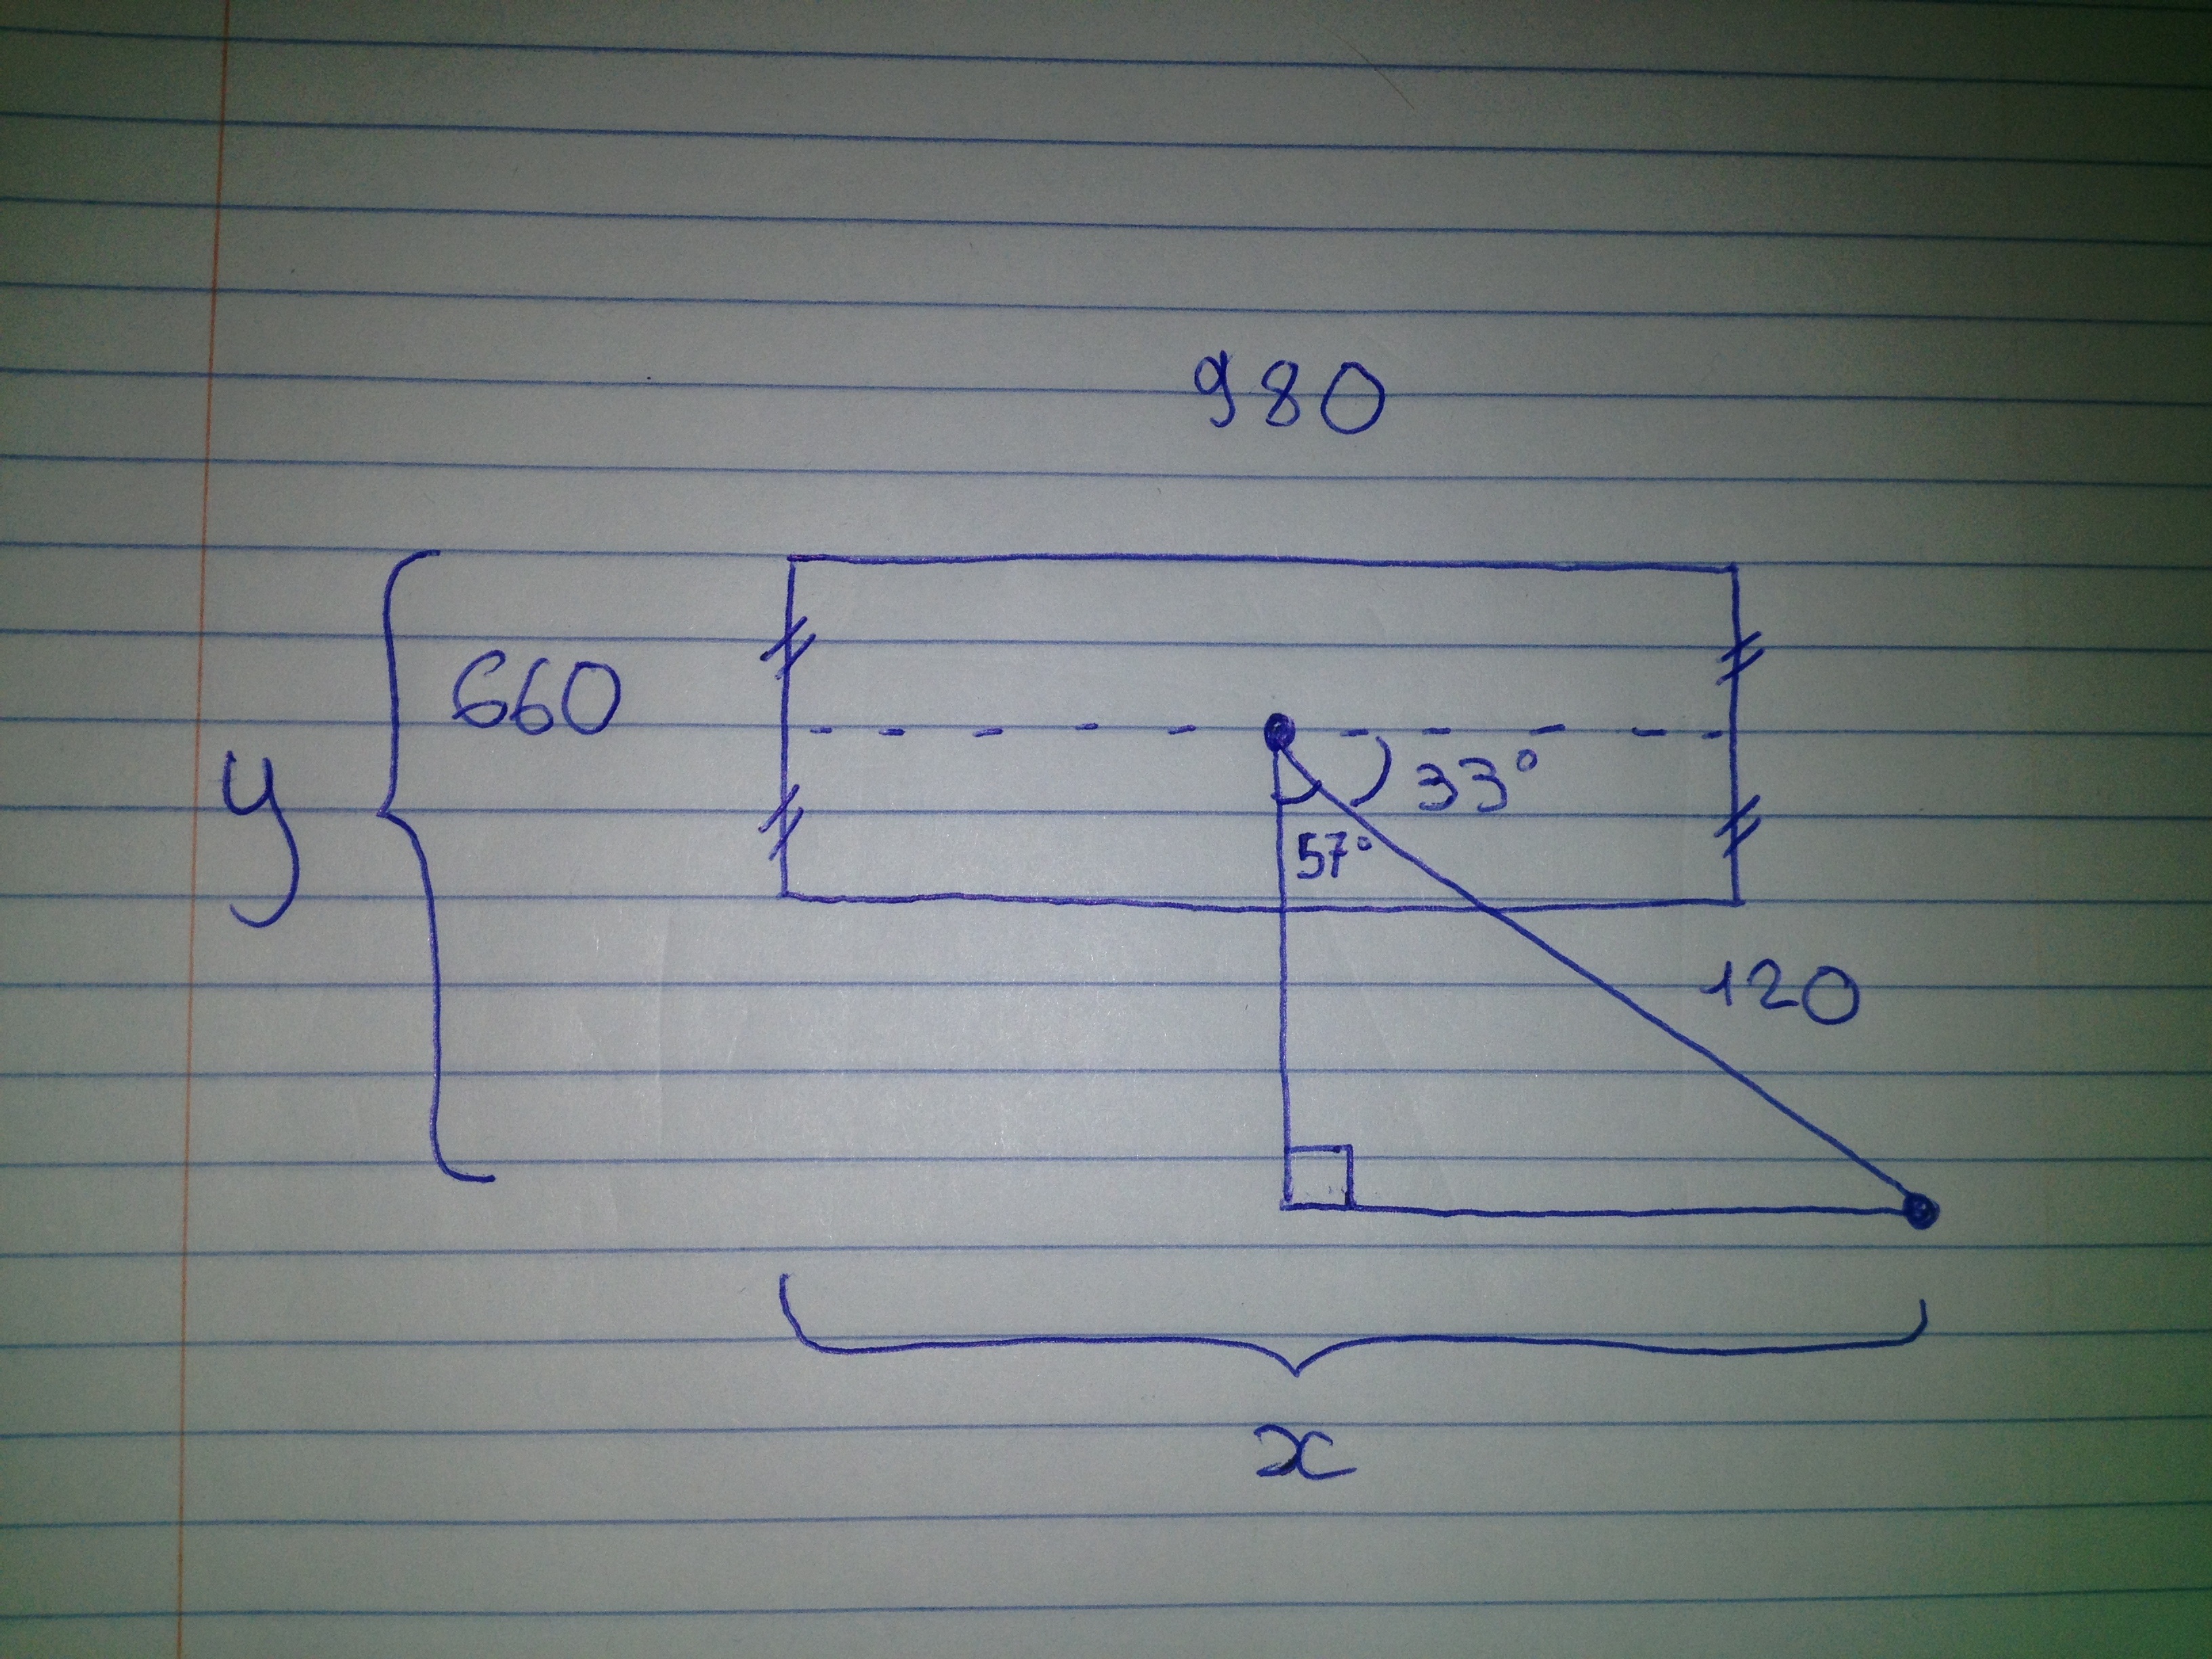 980
660
y
33°
57°
120
x